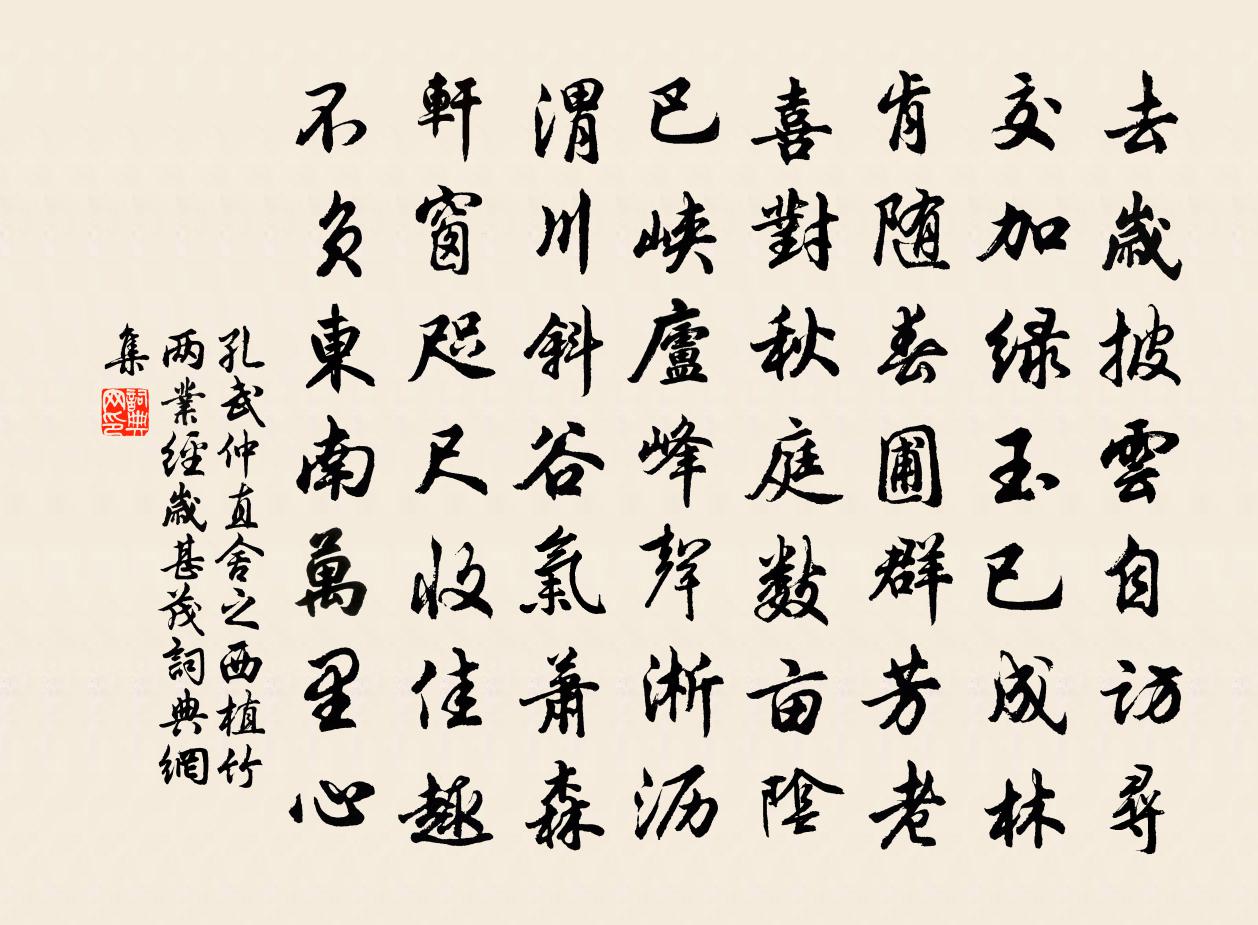 去歲披雲自訪尋
交加绿玉已成林
肯随春圃群芳老
喜對秋庭数亩陰
巴峡廬峰聲淅沥
渭川斜谷氣蕭森
軒窗咫尺收佳趣
不负東南萬里心
孔武仲直舍之西植竹
两業經歲甚茂詞典網
集
詞典
网印